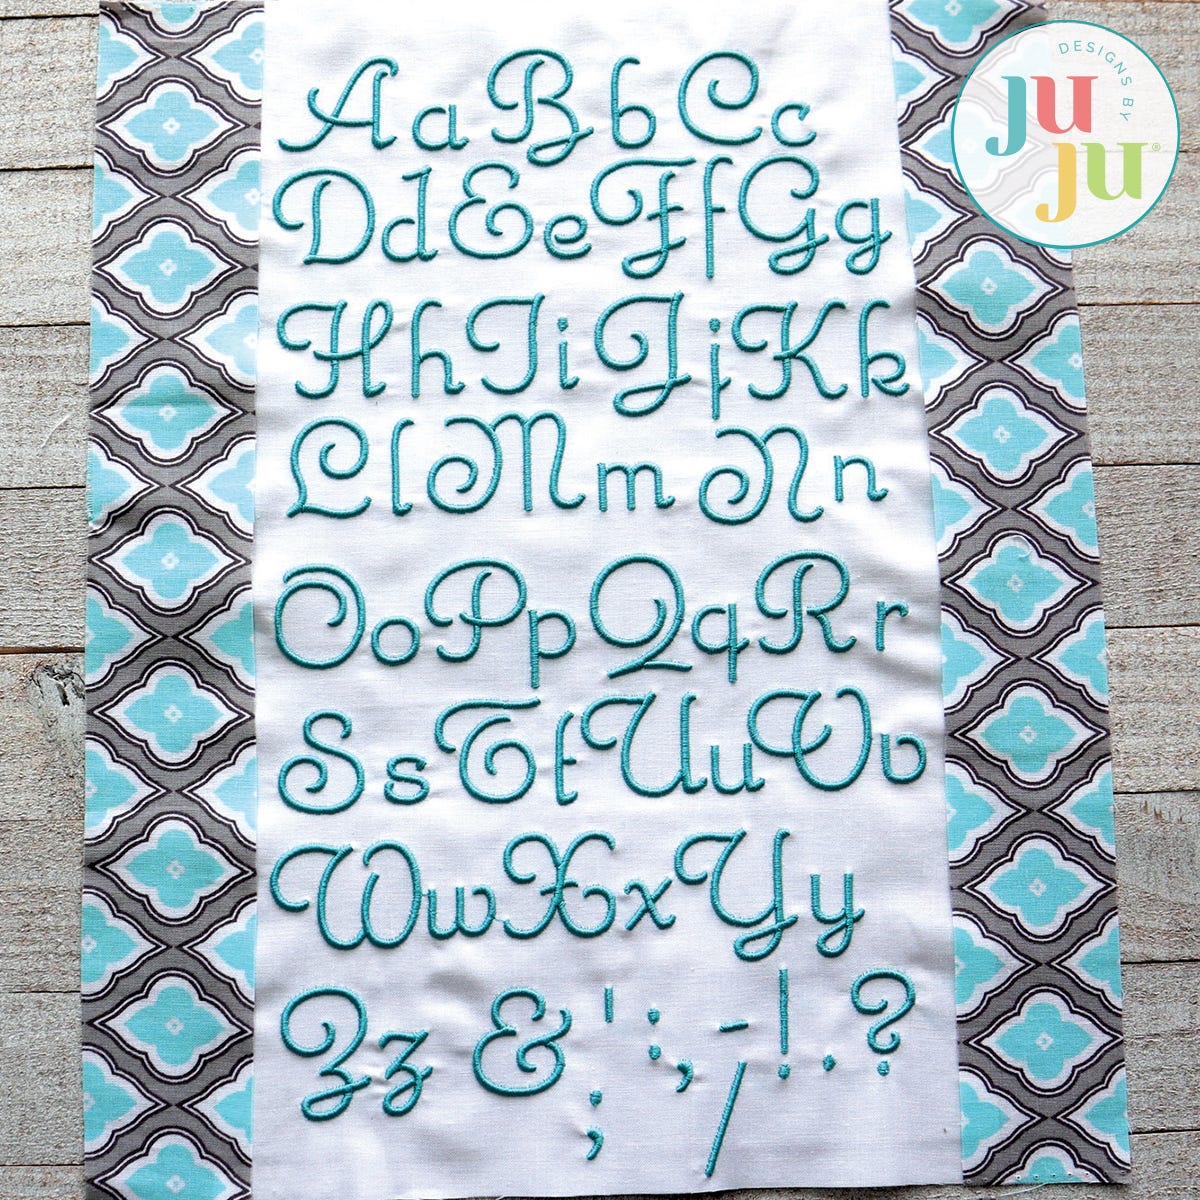 DESIGNS BY
JU
JU®
Aa Bb Cc
Dd Ee Ff Gg
Hh Ii Jj Kk
Ll Mm Nn
Oo Pp Qq Rr
Ss Tt Uu Vv
Ww Xx Yy
Zz & ' : , - ! . ?
; /